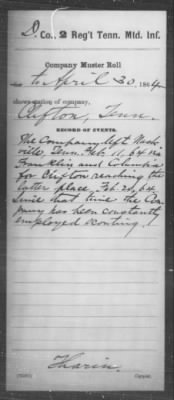 D. Co., 2 Reg't Tenn. Mtd. Inf.
Company Muster Roll
to April 30, 1864
shows station of company,
Clifton, Tenn.
RECORD OF EVENTS.
The Company left Nash-
ville, Tenn. Feb. 11, 64 via
Franklin and Columbia
for Clifton reaching the
latter place, Feb 20, 64
Since that time the Com-
pany has been constantly
employed scouting.
Tharin
Copyist.